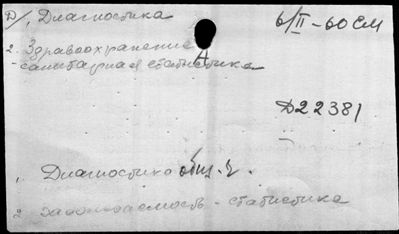 D/1, Диагностика
6/II-60 см
2. Здравоохранение
А
- санитарная статистика
D22381
1, Диагностика общ. ч.
2 заболеваемость - статистика